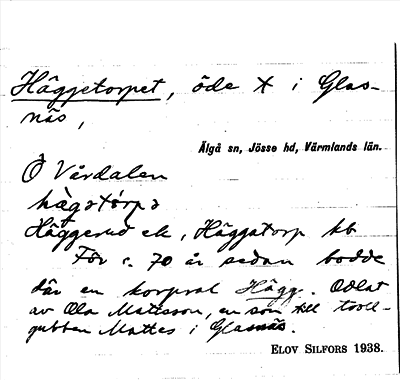 Häggetorpet, öde X i Glas-
näs,
Älgå sn, Jösse hd, Värmlands län.
Ö Vårdalen
hàgətórpə
Häggerud ek, Häggatorp kb
För c. 70 år sedan bodde
där en korpral Hägg. Odlat
av Ola Mattsson, en son till troll-
gubben Mattes i Glasnäs.
ELOV SILFORS 1938.